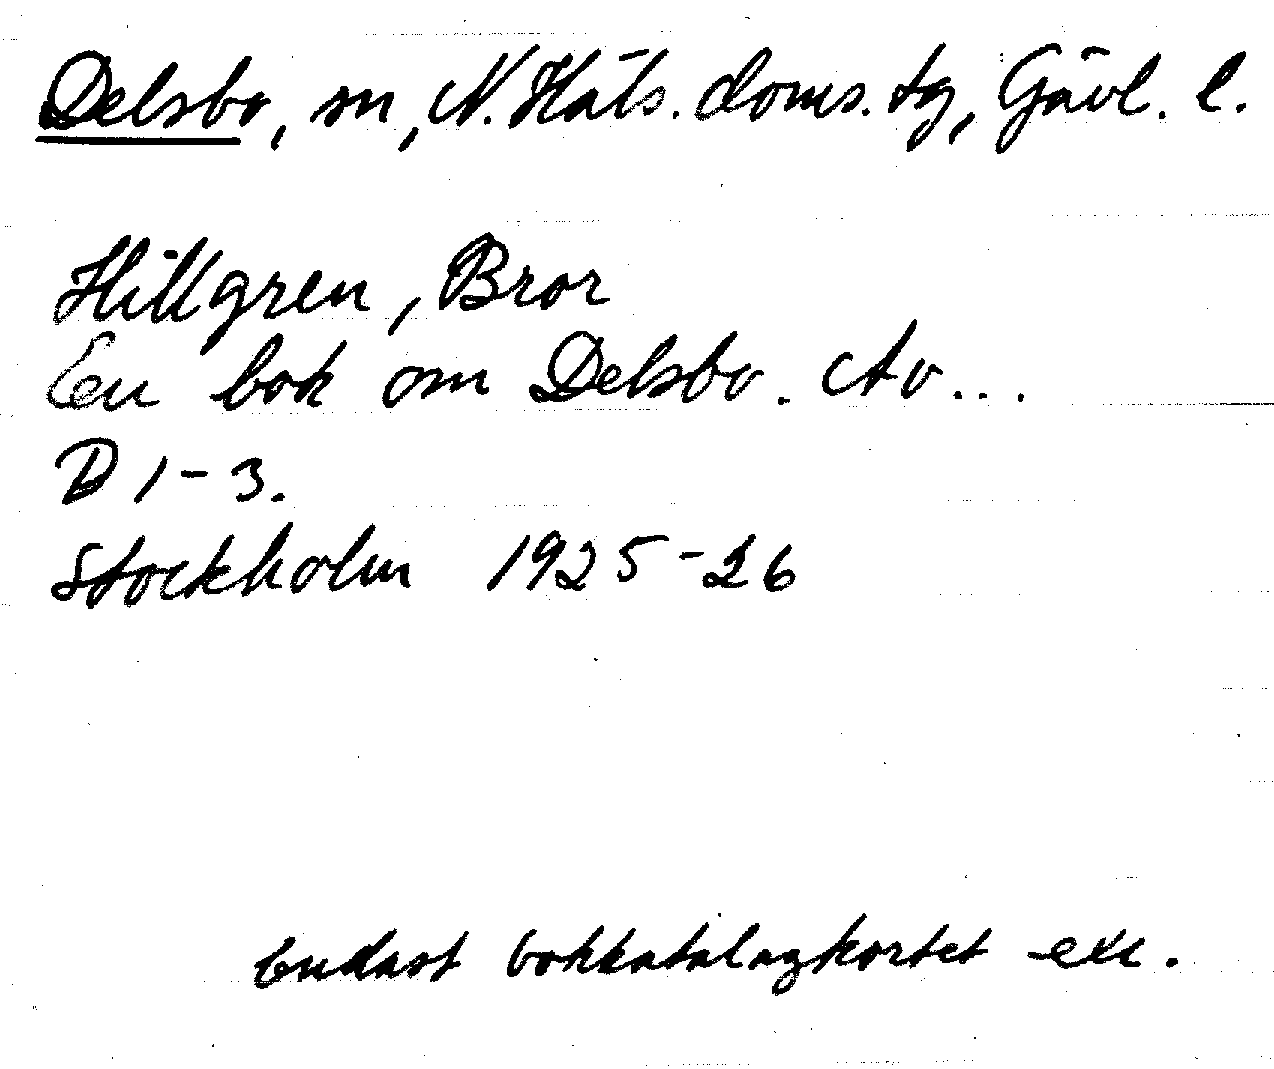 Delsbo, sn, N. Häls. doms. tg, Gävl. l.
Hillgren, Bror
En bok om Delsbo. Av...
D 1-3.
Stockholm 1925-26
Endast bokkatalogkortet exc.